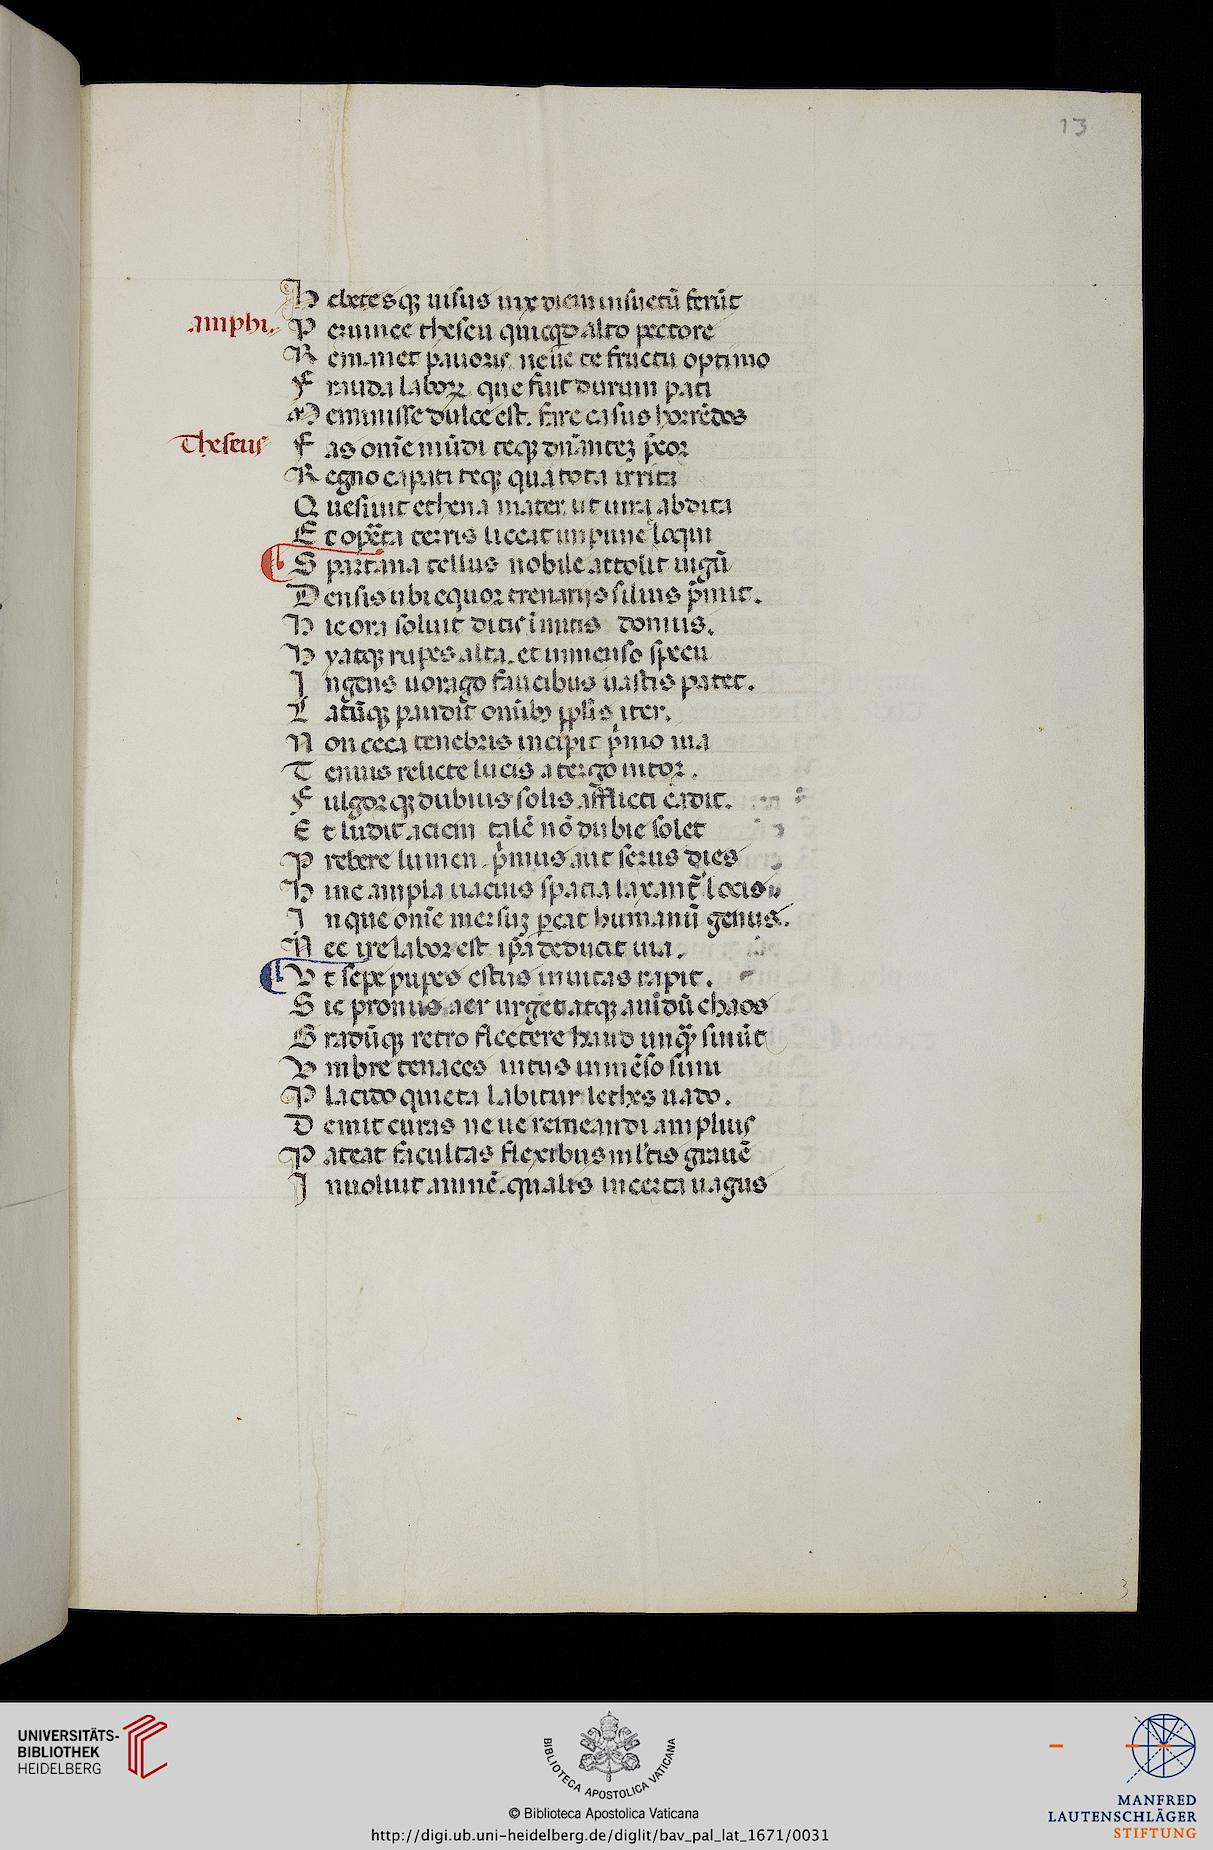 13
H ebetesq; uisus uix diem insuetū ferūt
.amphi. P eruince theseu quicqd alto pectore
R emanet pauoris neue te fructu optimo
F rauda laboꝝ que fuit durum pati
M eminisse dulce est. fare casus horrēdos
Theseus F as om̄e mūdi teq; dn̄antez p̄cor
R egno capaci teq; quā tota irrita
Q uesiuit ethena mater. ut iura abdita
E t opta terris liceat impune loqui
S partana tellus nobile attolit iugū
D ensis ubi equor trenarijs siluis p̄mit.
H ic ora soluit ditis inuitis domus.
H yatq; rupes alta. et immenso specu
I ngens uorago faucibus uastis patet.
L atūq; pandit om̄ibꝫ ppl̄is iter.
N on ceca tenebris incipit p̄mo uia
T enuis relicte lucis a tergo nitor.
F ulgorq; dubius solis afflicti cadit.
E t ludit aciem talē nō dubie solet
P rebere lumen. p̄mus aut serus dies
H inc ampla uacuis spatia laxant̄ locis
I n que om̄e mersuz pereat humanū genus.
N ec ire labor est ip̄a deducit uia.
V t sepe pupes estus inuitas rapit.
S ic pronus aer urget atq; auidū chaos
G radūq; retro flectere haud unq̄ sinūt
V mbre tenaces intus immēso sinu
P lacido quieta labitur lethes uado.
D emit curas neue remeandi amplius
P ateat facultas flexibus ml̄tis grauē
I nuoluit amnē. qualis incerta uagus
3
UNIVERSITÄTS-
BIBLIOTHEK
HEIDELBERG
BIBLIOTECA APOSTOLICA VATICANA
© Biblioteca Apostolica Vaticana
http://digi.ub.uni-heidelberg.de/diglit/bav_pal_lat_1671/0031
MANFRED
LAUTENSCHLÄGER
STIFTUNG